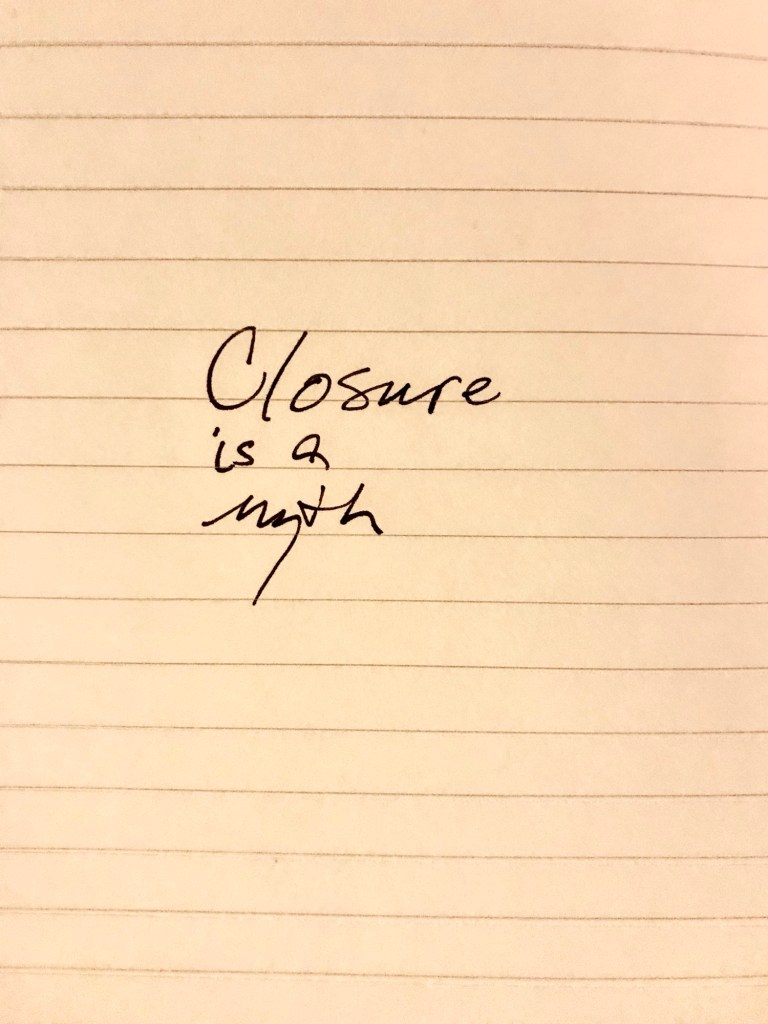 Closure
is a
myth